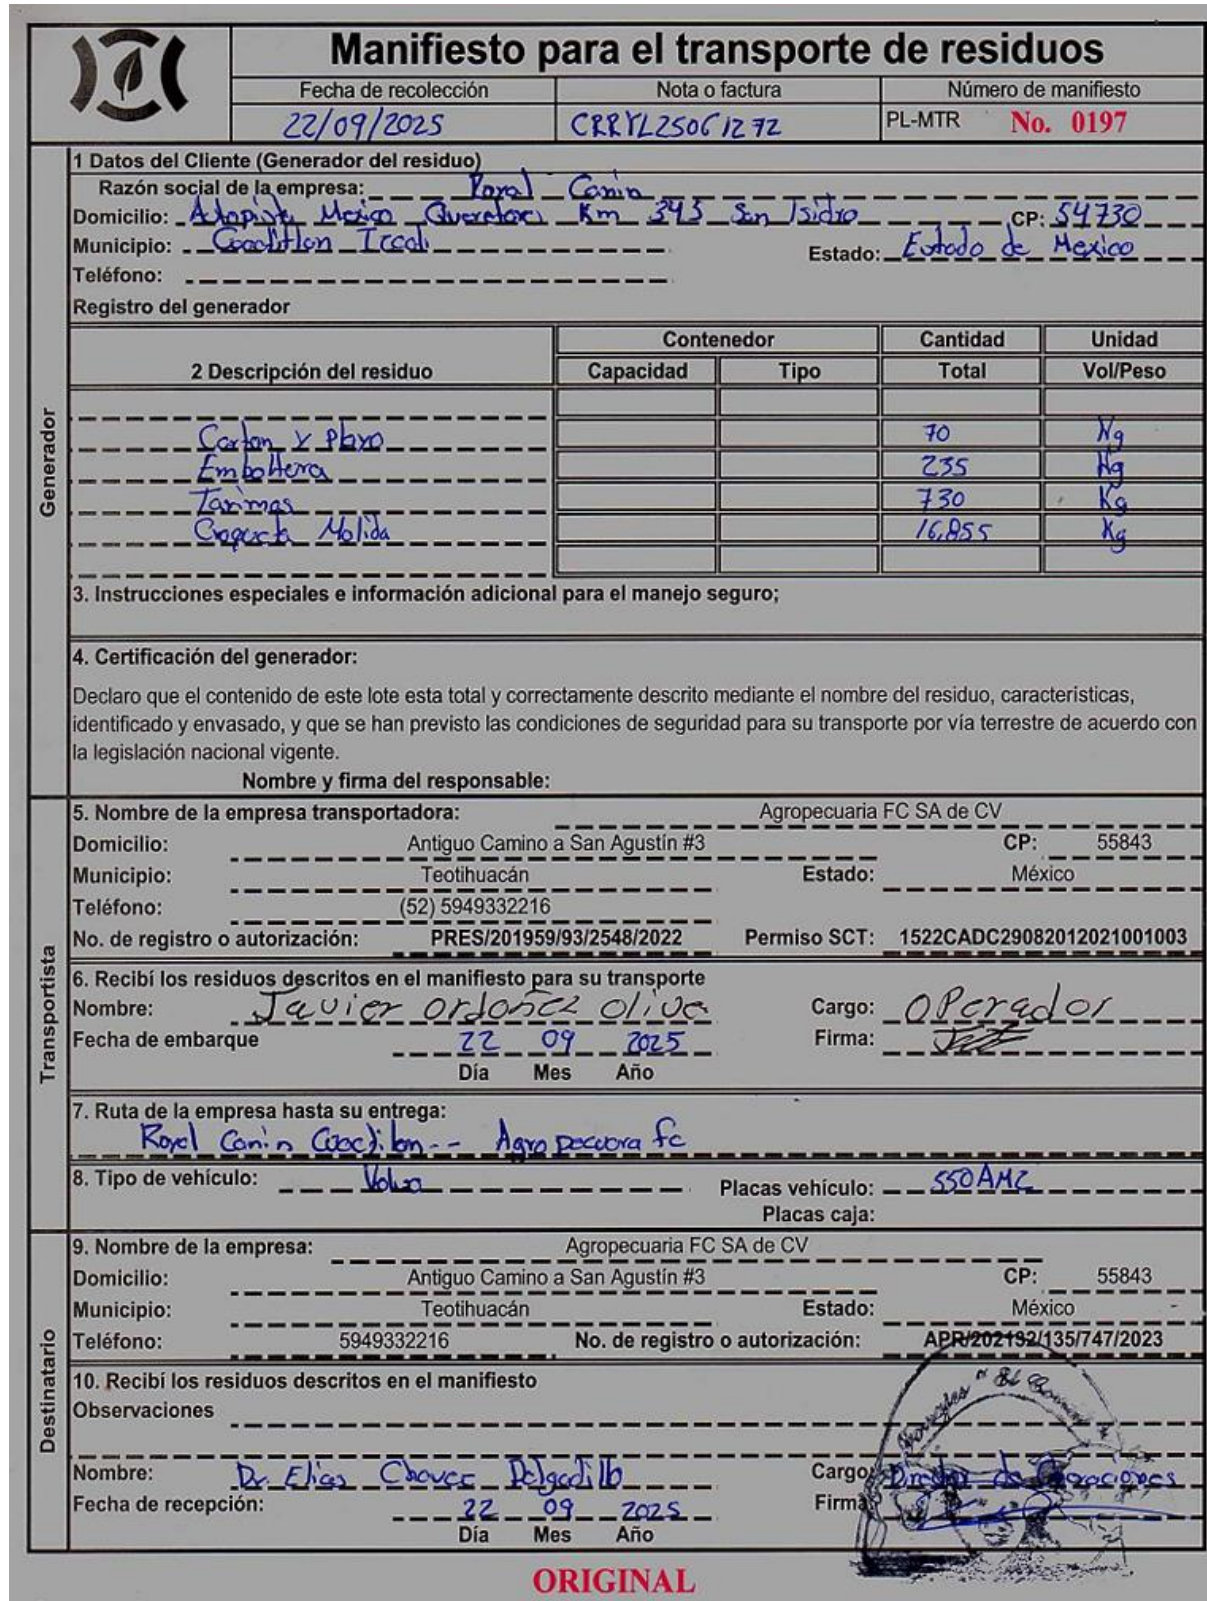 Manifiesto para el transporte de residuos
Fecha de recolección Nota o factura Número de manifiesto
22/09/2025 CRRYL25061272 PL-MTR No. 0197
Generador
1 Datos del Cliente (Generador del residuo)
Razón social de la empresa: Royal Canin
Domicilio: Autopista Mexico Queretaro Km 343 San Isidro CP: 54730
Municipio: Izcali
Estado: Estado de Mexico
Teléfono:
Registro del generador
2 Descripción del residuo Contenedor Cantidad Unidad
Capacidad Tipo Total Vol/Peso
Carton y Playo 70 Kg
235 Kg
Tarimas 730 Kg
Croqueta Molida 16,855 Kg
3. Instrucciones especiales e información adicional para el manejo seguro;
4. Certificación del generador:
Declaro que el contenido de este lote esta total y correctamente descrito mediante el nombre del residuo, características,
identificado y envasado, y que se han previsto las condiciones de seguridad para su transporte por vía terrestre de acuerdo con
la legislación nacional vigente.
Nombre y firma del responsable:
Transportista
5. Nombre de la empresa transportadora: Agropecuaria FC SA de CV
Domicilio: Antiguo Camino a San Agustín #3 CP: 55843
Municipio: Teotihuacán Estado: México
Teléfono: (52) 5949332216
No. de registro o autorización: PRES/201959/93/2548/2022 Permiso SCT: 1522CADC29082012021001003
6. Recibí los residuos descritos en el manifiesto para su transporte
Nombre: Javier Ordoñez Oliva Cargo: Operador
Fecha de embarque 22 09 2025 Firma:
Día Mes Año
7. Ruta de la empresa hasta su entrega:
Royal Canin -- fc
8. Tipo de vehículo: Volvo Placas vehículo: 550AM2
Placas caja:
Destinatario
9. Nombre de la empresa: Agropecuaria FC SA de CV
Domicilio: Antiguo Camino a San Agustín #3 CP: 55843
Municipio: Teotihuacán Estado: México
Teléfono: 5949332216 No. de registro o autorización: APR/202192/135/747/2023
10. Recibí los residuos descritos en el manifiesto
Observaciones
Nombre: Dr. Elias Chavez Delgadillo Cargo: Director de Operaciones
Fecha de recepción: 22 09 2025 Firma:
Día Mes Año
ORIGINAL